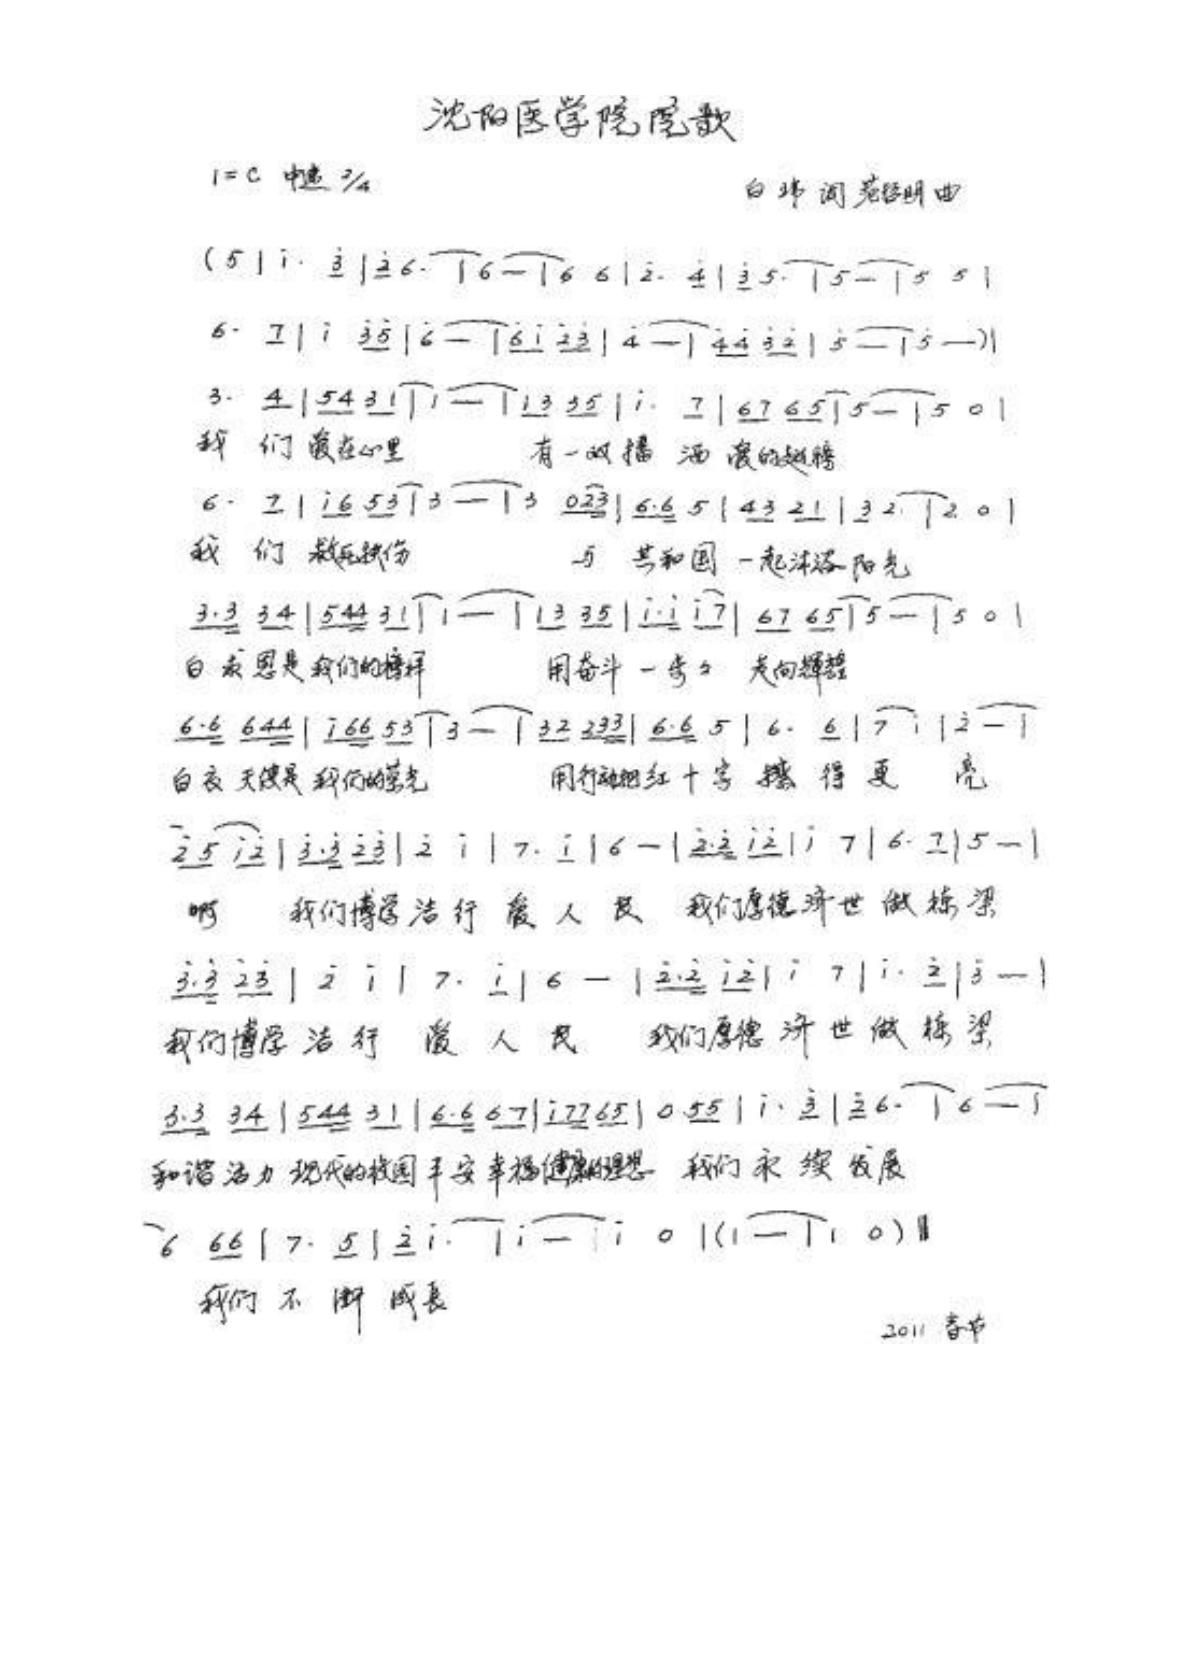 沈阳医学院院歌
1=C 中速 2/4
白玮词 范哲明曲
(5|i· 3|26·|6—|6 6|2· 4|35·|5—|5 5|
6· 7|i 35|6—|6i 23|4—|44 32|5—|5—)|
3· 4|54 31|1—|13 35|i· 7|67 65|5—|5 0|
我们爱在心里 有一双播洒爱的翅膀
6· 7|i6 53|3—|3 023|6·6 5|43 21|32·|2 0|
我们救死扶伤 与共和国一起沐浴阳光
3·3 34|544 31|1—|13 35|i·i i7|67 65|5—|5 0|
白求恩是我们的榜样 用奋斗一步々走向辉煌
6·6 644|i66 53|3—|32 233|6·6 5|6· 6|7 i|2—|
白衣天使是我们的荣光 用行动把红十字擦得更亮
25 i2|3·3 23|2 i|7· i|6—|2·2 i2|i 7|6· 7|5—|
啊 我们博学洁行爱人民 我们厚德济世做栋梁
3·3 23|2 i|7· i|6—|2·2 i2|i 7|i· 2|3—|
我们博学洁行爱人民 我们厚德济世做栋梁
3·3 34|544 31|6·6 67|i77 65|0 55|i· 3|26·|6—|
和谐活力现代的校园平安幸福健康的理想 我们永续发展
6 66|7· 5|2i·|i—|i 0|(1—|1 0)‖
我们不断成长
2011 春节